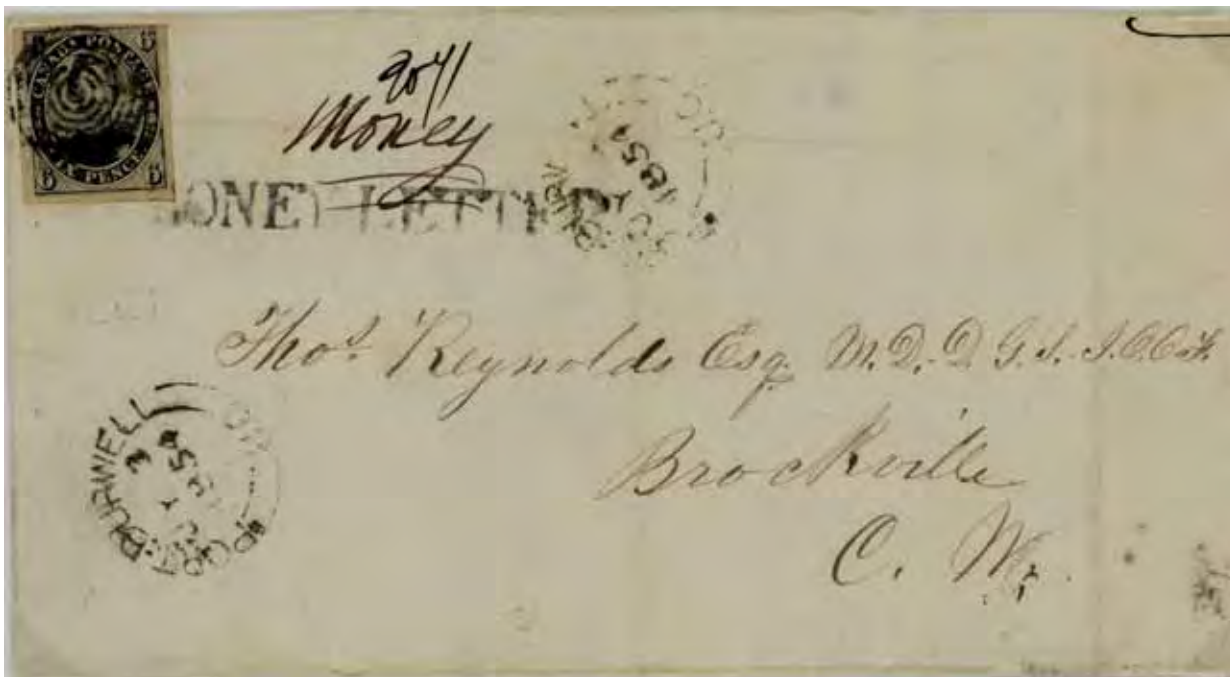 6 CANADA POSTAGE 6
6 SIX PENCE 6
Money
MONEY LETTER
185
Thos. Reynolds Esq. M.D. D.G.S. I.O.O.F.
Brockville
C. W.
PORT-BURWELL
UC
JY 3
185